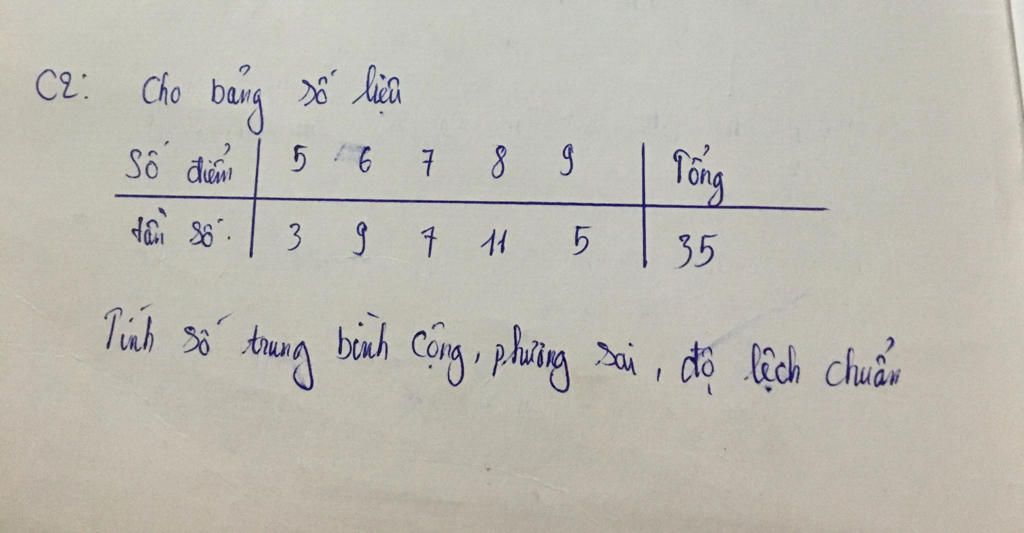 C2: Cho bảng số liệu
Số điểm 5 6 7 8 9 Tổng
tần số. 3 9 7 11 5 35
Tính số trung bình cộng, phương sai, độ lệch chuẩn